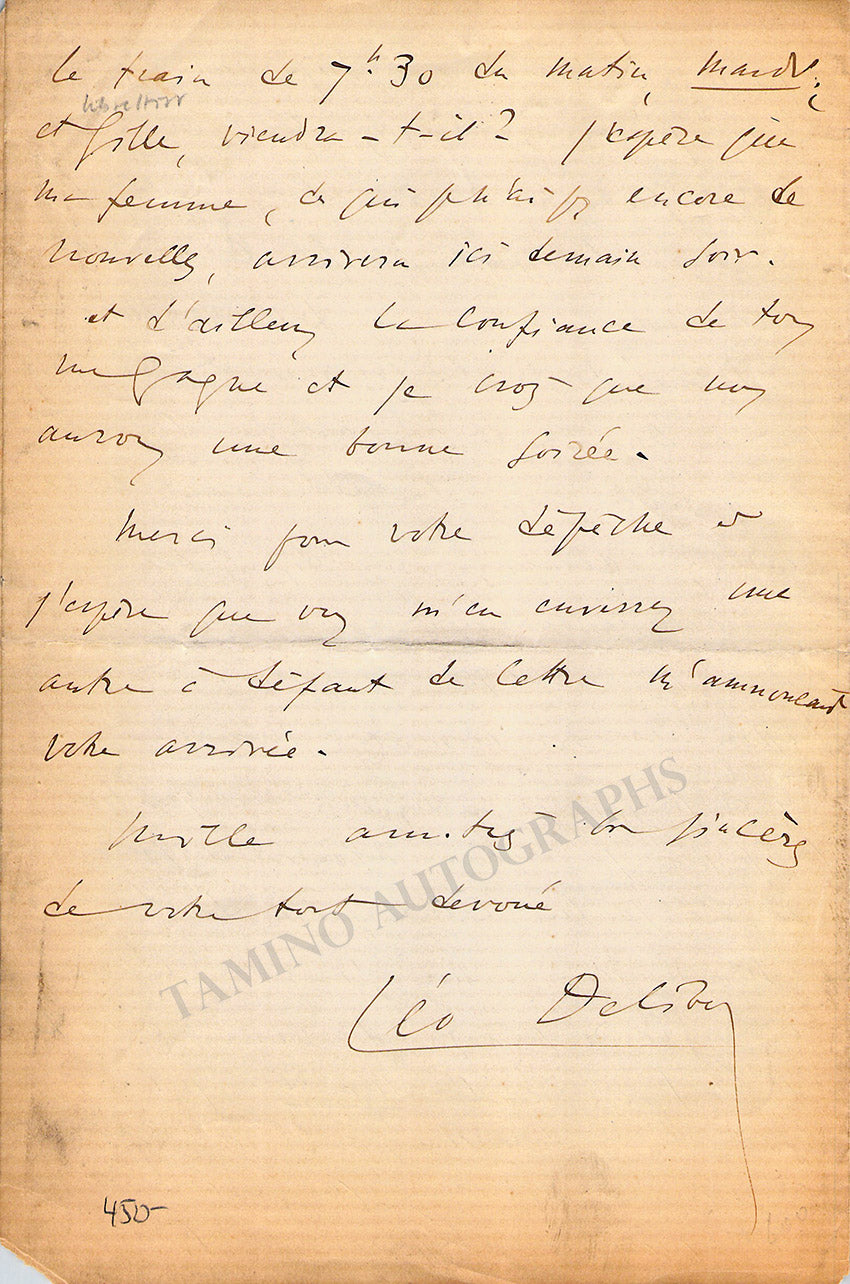 le train de 7h.30 du matin, mardi;
librettist
et Gille, viendra-t-il? J'espère que
ma femme, de qui je n'ai pas encore de
nouvelles, arrivera ici demain soir.
et d'ailleurs la confiance de tous
me gagne et je crois que nous
aurons une bonne soirée.
Merci pour votre dépêche et
j'espère que vous m'en enverrez une
autre à défaut de lettre m'annonçant
votre arrivée.
Mille amitiés bien sincères
de votre tout dévoué
Léo Delibes
450-
TAMINO AUTOGRAPHS